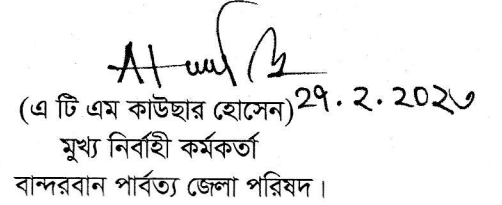 (এ টি এম কাউছার হোসেন) ২৭.২.২০২৩
মুখ্য নির্বাহী কর্মকর্তা
বান্দরবান পার্বত্য জেলা পরিষদ।